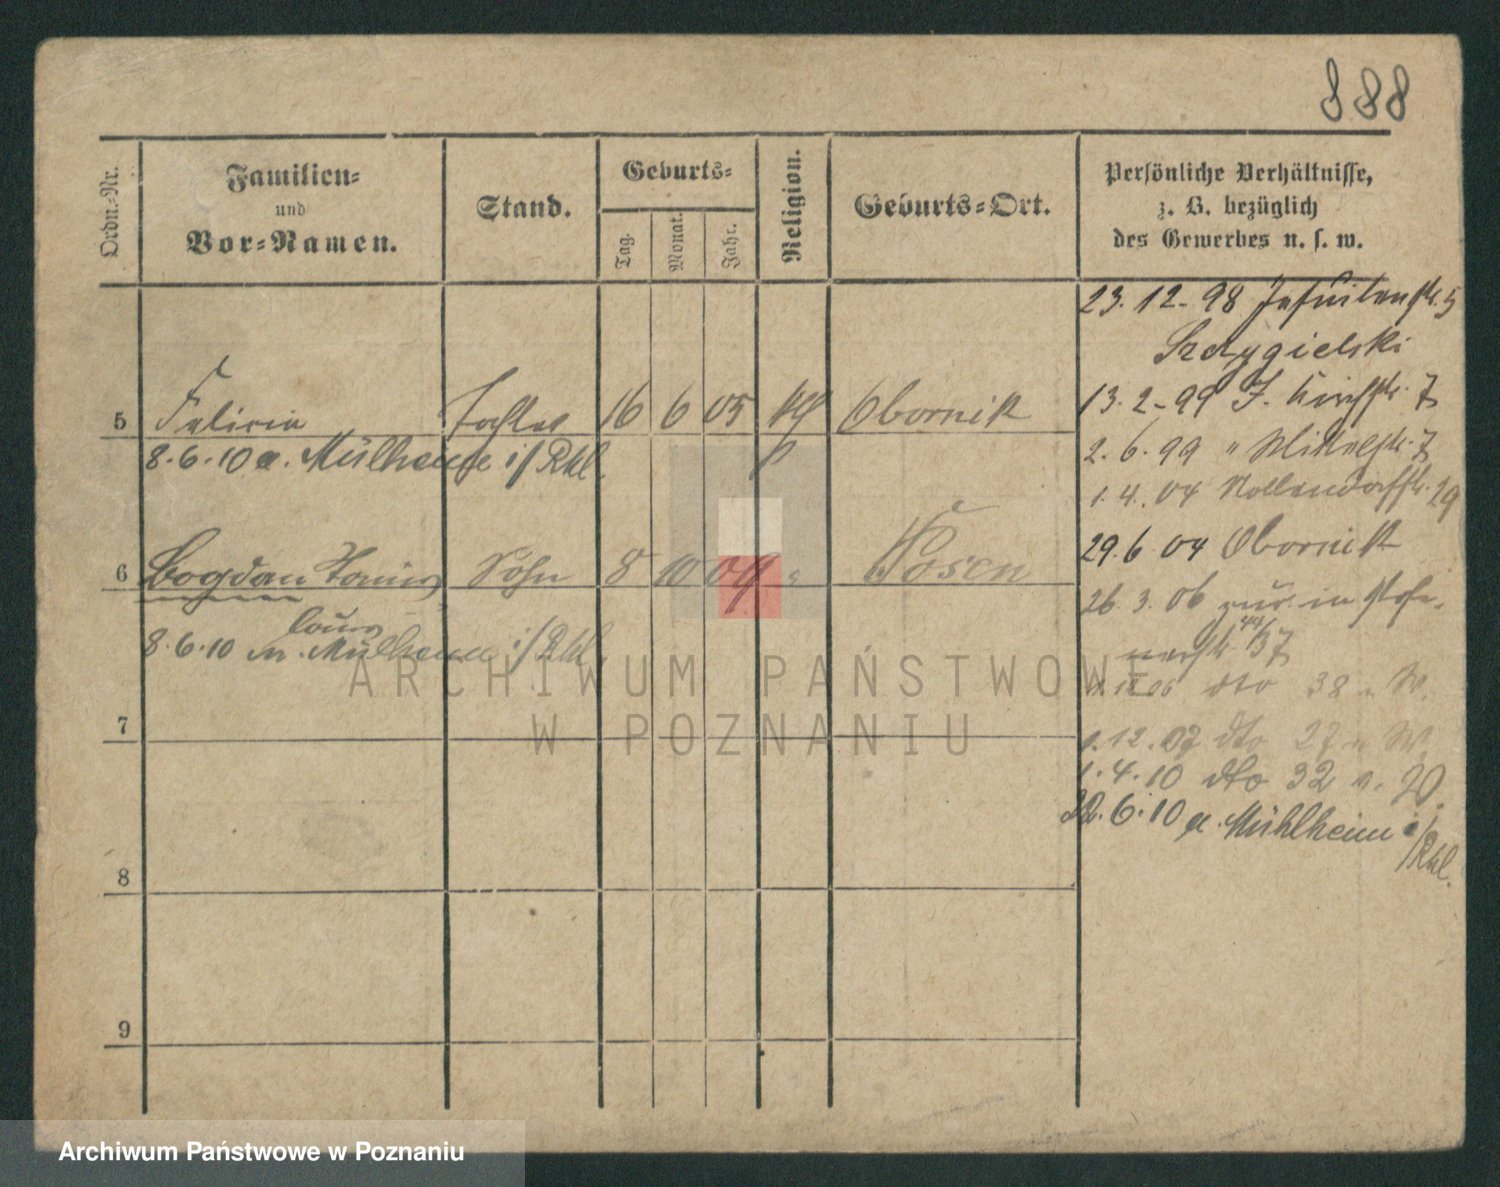 888
Ordn.-Nr.
Familien-
und
Vor-Namen.
Stand.
Geburts-
Tag.
Monat.
Jahr.
Religion.
Geburts-Ort.
Persönliche Verhältnisse,
z. B. bezüglich
des Gewerbes u. s. w.
23. 12. 98 Jesuitenstr. 5
13. 2. 99
5 Felicia Tochter 16 6 05 Obornik
8. 6. 10 a. Mülheim i/Rhl.
2. 6. 99 " 7
1. 4. 04 Nollendorfstr. 29
29. 6 04 Obornik
6 Bogdan Sohn 8 10 09 " Posen
26. 3. 06 zur. in
Louis
8. 6. 10 Mülheim i/Rhl.
37
dto 38 W.
ARCHIWUM PAŃSTWOWE
W POZNANIU
7
1. 12. 07 dto 27 W.
1. 4. 10 dto 32
22. 6. 10 a. Mühlheim i/
Rhl.
8
9
Archiwum Państwowe w Poznaniu